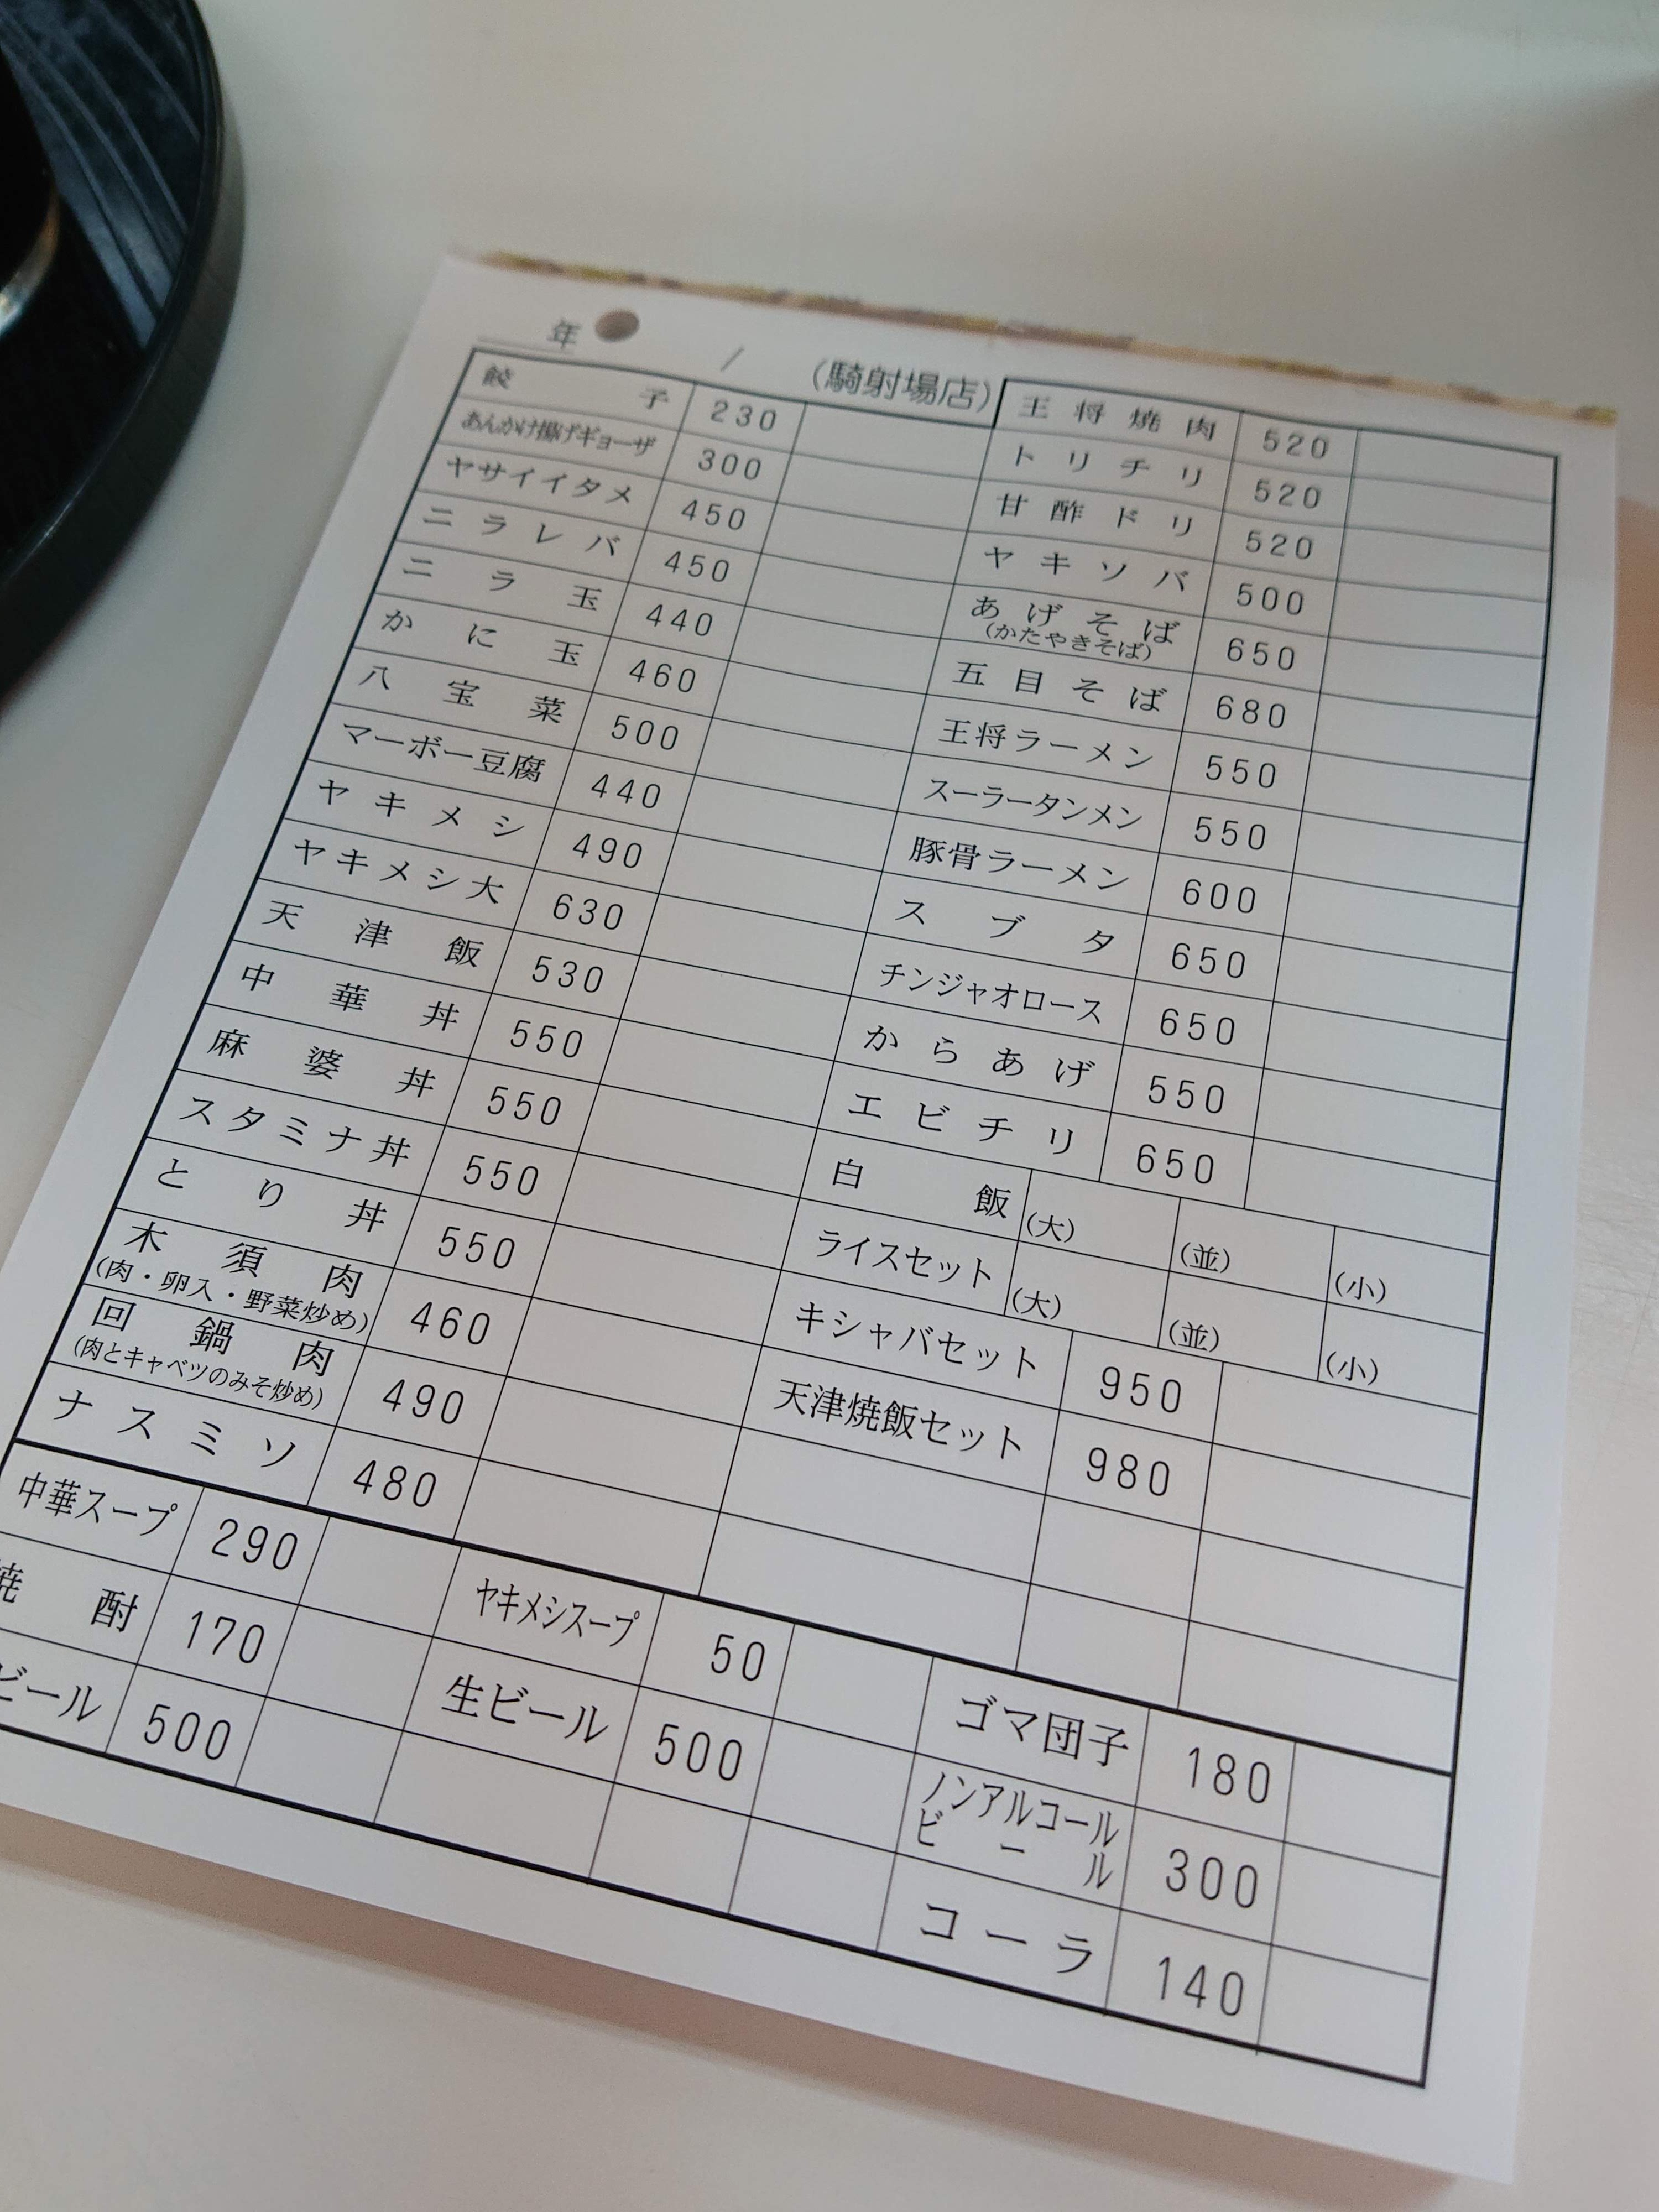 年 / (騎射場店)
餃子 230
あんかけ揚げギョーザ 300
ヤサイイタメ 450
ニラレバ 450
ニラ玉 440
かに玉 460
八宝菜 500
マーボー豆腐 440
ヤキメシ 490
ヤキメシ大 630
天津飯 530
中華丼 550
麻婆丼 550
スタミナ丼 550
とり丼 550
木須肉 460
(肉・卵入・野菜炒め)
回鍋肉 490
(肉とキャベツのみそ炒め)
ナスミソ 480
王将焼肉 520
トリチリ 520
甘酢ドリ 520
ヤキソバ 500
あげそば 650
(かたやきそば)
五目そば 680
王将ラーメン 550
スーラータンメン 550
豚骨ラーメン 600
スブタ 650
チンジャオロース 650
からあげ 550
エビチリ 650
白飯 (大) (並) (小)
ライスセット (大) (並) (小)
キシャバセット 950
天津焼飯セット 980
中華スープ 290
焼酎 170
ビール 500
ヤキメシスープ 50
生ビール 500
ゴマ団子 180
ノンアルコール
ビール 300
コーラ 140